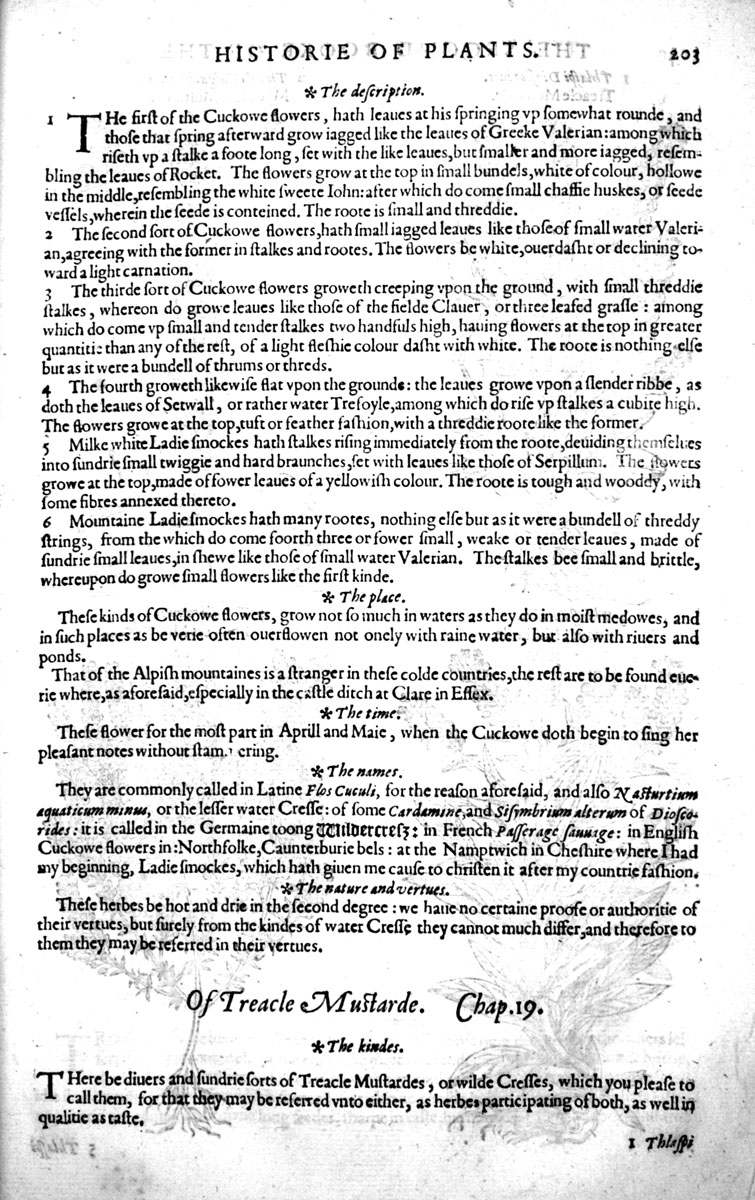 HISTORIE OF PLANTS. 203
* The deſcription.
1 THe firſt of the Cuckowe flowers, hath leaues at his ſpringing vp ſomewhat rounde, and
thoſe that ſpring afterward grow iagged like the leaues of Greeke Valerian: among which
riſeth vp a ſtalke a foote long, ſet with the like leaues, but ſmaller and more iagged, reſem-
bling the leaues of Rocket. The flowers grow at the top in ſmall bundels, white of colour, hollowe
in the middle, reſembling the white ſweete Iohn: after which do come ſmall chaffie huskes, or ſeede
veſſels, wherein the ſeede is conteined. The roote is ſmall and threddie.
2 The ſecond ſort of Cuckowe flowers, hath ſmall iagged leaues like thoſe of ſmall water Valeri-
an, agreeing with the former in ſtalkes and rootes. The flowers be white, ouerdaſht or declining to-
ward a light carnation.
3 The thirde ſort of Cuckowe flowers groweth creeping vpon the ground, with ſmall threddie
ſtalkes, whereon do growe leaues like thoſe of the fielde Clauer, or three leafed graſſe: among
which do come vp ſmall and tender ſtalkes two handfuls high, hauing flowers at the top in greater
quantitie than any of the reſt, of a light fleſhie colour daſht with white. The roote is nothing elſe
but as it were a bundell of thrums or threds.
4 The fourth groweth likewiſe flat vpon the grounde: the leaues growe vpon a ſlender ribbe, as
doth the leaues of Setwall, or rather water Trefoyle, among which do riſe vp ſtalkes a cubite high.
The flowers growe at the top, tuft or feather faſhion, with a threddie roote like the former.
5 Milke white Ladie ſmockes hath ſtalkes riſing immediately from the roote, deuiding themſelues
into ſundrie ſmall twiggie and hard braunches, ſet with leaues like thoſe of Serpillum. The flowers
growe at the top, made of fower leaues of a yellowiſh colour. The roote is tough and wooddy, with
ſome fibres annexed thereto.
6 Mountaine Ladieſmockes hath many rootes, nothing elſe but as it were a bundell of threddy
ſtrings, from the which do come foorth three or fower ſmall, weake or tender leaues, made of
ſundrie ſmall leaues, in ſhewe like thoſe of ſmall water Valerian. The ſtalkes bee ſmall and brittle,
whereupon do growe ſmall flowers like the firſt kinde.
* The place.
Theſe kinds of Cuckowe flowers, grow not ſo much in waters as they do in moiſt medowes, and
in ſuch places as be verie often ouerflowen not onely with raine water, but alſo with riuers and
ponds.
That of the Alpiſh mountaines is a ſtranger in theſe colde countries, the reſt are to be found eue-
rie where, as aforeſaid, eſpecially in the caſtle ditch at Clare in Eſſex.
* The time.
Theſe flower for the moſt part in Aprill and Maie, when the Cuckowe doth begin to ſing her
pleaſant notes without ſtam, cring.
* The names.
They are commonly called in Latine Flos Cuculi, for the reaſon aforeſaid, and alſo Naſturtium
aquaticum minus, or the leſſer water Creſſe: of ſome Cardamine, and Siſymbrium alterum of Dioſco-
rides: it is called in the Germaine toong Wildercreſz: in French Paſſerage ſauuage: in Engliſh
Cuckowe flowers in: Northfolke, Caunterburie bels: at the Namptwich in Cheſhire where I had
my beginning, Ladie ſmockes, which hath giuen me cauſe to chriſten it after my countrie faſhion.
* The nature and vertues.
Theſe herbes be hot and drie in the ſecond degree: we haue no certaine proofe or authoritie of
their vertues, but ſurely from the kindes of water Creſſe they cannot much differ, and therefore to
them they may be referred in their vertues.
Of Treacle Muſtarde. Chap. 19.
* The kindes.
THere be diuers and ſundrie ſorts of Treacle Muſtardes, or wilde Creſſes, which you pleaſe to
call them, for that they may be referred vnto either, as herbes participating of both, as well in
qualitie as taſte.
1 Thlaſpi